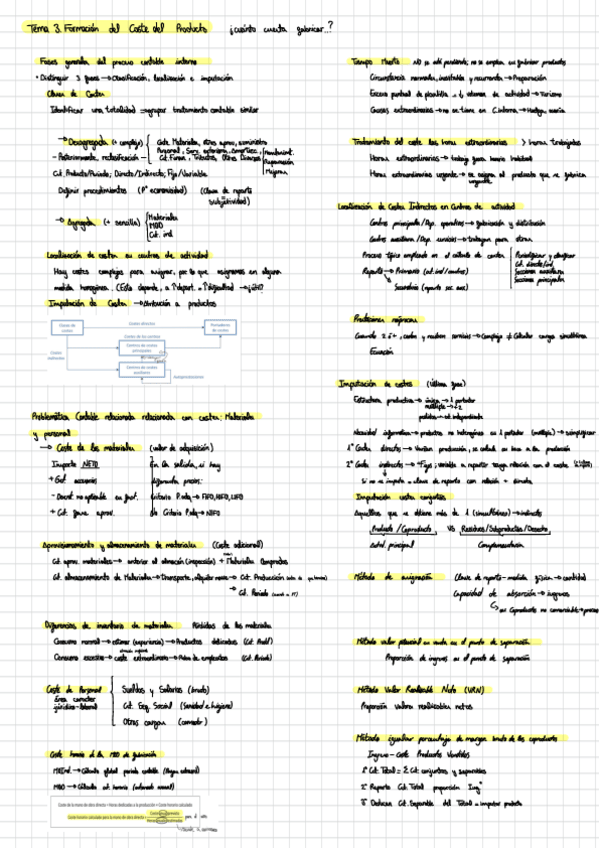 Tema 3. Formación del Coste del Producto ¿cuánto cuesta fabricar...?
Fases generales del proceso contable interno
• Distinguir 3 fases → Clasificación, localización e imputación
Clases de Costes
Identificar una totalidad = agrupar tratamiento contable similar
→ Desagregada (+ complejo)
Cte. Materiales, otros aprov, suministro
Personal, Serv. exteriores, Amortiz.
Ct. Financ, Tributos, Otras Diversas
- Posteriormente, reclasificación
Reparación
Mejora
Ct. Producto/Periodo; Directo/Indirecto; Fijo/Variable
Definir procedimientos (Pº economicidad) (Claves de reparto subjetividad)
→ Agregada (+ sencilla)
Materiales
MOD
Ct. ind
Localización de costes en centros de actividad
Hay costes complejos para asignar, por lo que asignamos en alguna
medida homogénea. (Esto depende, a ↑depart. + ↑dificultad → ¿útil?
Imputación de Costes → Atribución a productos
Clases de costes
Costes directos
Portadores de costes
Costes de los centros
Costes indirectos
Centros de costes principales
Centros de costes auxiliares
Autoprestaciones
Problemática Contable relacionada relacionada con costes: Materiales
y personal
→ Coste de los materiales (valor de adquisición)
Importe NETO
+ Gast. accesorios
+ Ct. func aprov.
En la salida, si hay
diferentes precios:
Criterio P.adq → FIFO, HIFO, LIFO
Sin Criterio P.adq → NIFO
Aprovisionamiento y almacenamiento de materiales (Coste adicional)
Ct. aprov. materiales → anterior al almacén (inspección) + Materiales Comprados
Ct. almacenamiento de Materiales → Transporte, alquiler naves → Ct. Producción
→ Ct. Periodo
Diferencias de inventario de materiales Pérdidas de los materiales
Consumo normal → estimar (experiencia) → Productos fabricados (Ct. Prod)
Consumo excesivo → coste extraordinario → (Ct. Periodo)
Coste de Personal
Área carácter
jurídico-laboral
Sueldos y Salarios (bruto)
Ct. Seg. Social (Sanidad e higiene)
Otras cargas (comedor)
Coste horario de la MOD de fabricación
MOInd. → Cálculo global periodo contable
MOD → Cálculo ct. horario
Coste de la mano de obra directa = Horas dedicadas a la producción × Coste horario calculado
Coste horario calculado para la mano de obra directa =
Tiempo Muerto No se está perdiendo, no se emplea en fabricar productos
Circunstancia normales, inevitable y recurrente → Preparación
Exceso puntual de plantilla → ↓ volumen de actividad → Turismo
Causas extraordinarias → no se tiene en C.interna → Huelga, avería
Tratamiento del coste las horas extraordinarias > horas trabajadas
Horas extraordinarias → trabajo fuera horario habitual
Horas extraordinarias urgente → se asigna al producto que se fabrica
urgente
Localización de Costes Indirectos en Centros de actividad
Centros principales/Dep. operativos → fabricación y distribución
Centros auxiliares/Dep. servicios → trabajan para otros
Proceso típico empleado en el cálculo de costes
Periodificar y clasificar
Ct. directo/ind.
Secciones auxiliares
Secciones principales
Reparto → Primario (ct. ind / centros)
Secundario (reparto sec. aux)
Prestaciones recíprocas
Cuando 2 ó +, ceden y reciben servicios → Complejo ≠ Calcular cargas simultánea
Ecuación
Imputación de costes (última fase)
Estructura productiva → única → 1 portador
múltiple → +2
pedidos → ct. independiente
Necesidad informativa → productos no heterogéneos en 1 portador (múltiple) → simplificar
1º Costes directos → Varían producción, se calcula en base a la producción
2º Costes indirectos → Fijos; variable a repartir tenga relación con el coste
Si no se imputa → clave de reparto con relación = directo
Imputación costes conjuntos
Aquellos que se obtiene más de 1 (simultáneo) → indirectos
Producto / Coproducto VS Residuos/Subproductos/Desecho
Activ. principal Complementarios
Método de asignación (Clave de reparto - medida física → cantidad
Capacidad de absorción → ingresos
↳ ou Coproducto no comercializable → proceso
Método valor potencial en venta en el punto de separación
Proporción de ingresos en el punto de separación
Método Valor Realizable Neto (VRN)
Proporción valores realizables netos
Método igualar porcentaje de margen bruto de los coproductos
Ingreso - Coste Productos Vendidos
1º Ct. Total = Σ Ct. conjuntos y separables
2º Reparto Ct. Total proporción Ing.º
3º Deducen Ct. Separable del Total = imputar producto